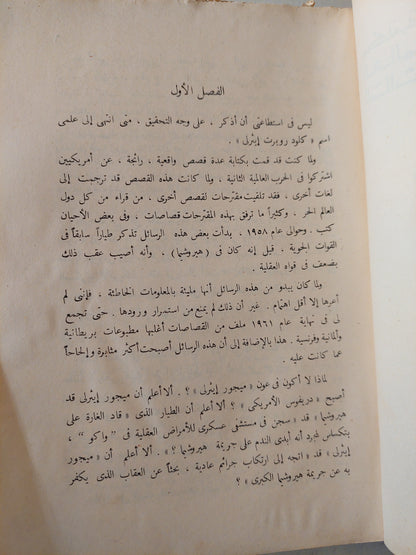 الفصل الأول
ليس فى استطاعتى أن أذكر ، على وجه التحقيق ، متى انتهى إلى علمى
اسم « كلود روبرت إيثرلى » .
ولما كنت قد قمت بكتابة عدة قصص واقعية ، رائجة ، عن أمريكيين
اشتركوا فى الحرب العالمية الثانية ، ولما كانت هذه القصص قد ترجمت إلى
لغات أخرى ، فقد تلقيت مقترحات لقصص أخرى ، من قراء من كل دول
العالم الحر . وكثيراً ما ترفق بهذه المقترحات قصاصات ، وفى بعض الأحيان
كتب . وحوالى عام ١٩٥٨ ، بدأت بعض هذه الرسائل تذكر طياراً سابقاً فى
القوات الجوية ، قيل إنه كان فى ( هيروشيما ) ، وأنه أصيب عقب ذلك
بضعف فى قواه العقلية .
ولما كان يبدو من هذه الرسائل أنها مليئة بالمعلومات الخاطئة ، فإننى لم
أعرها إلا أقل اهتمام . غير أن ذلك لم يمنع من استمرار ورودها . حتى تجمع
لى فى نهاية عام ١٩٦١ ملف من القصاصات أغلبها مطبوعات بريطانية
وألمانية وفرنسية . هذا بالإضافة إلى أن هذه الرسائل أصبحت أكثر مثابرة وإلحاحاً
عما كانت عليه .
لماذا لا أكون فى عون « ميجور إيثرلى » ؟ . ألا أعلم أن ميجور إيثرلى قد
أصبح « دريفوس الأمريكى » ؟ . ألا أعلم أن الطيار الذى « قاد الغارة على
هيروشيما » قد « سجن فى مستشفى عسكرى للأمراض العقلية فى " واكو " ،
بتكساس لمجرد أنه أبدى الندم على جريمة هيروشيما ؟ » . ألا أعلم أن « ميجور
إيثرلى » قد « اتجه إلى ارتكاب جرائم عادية ، بحثاً عن العقاب الذى يكفر
به عن جريمة هيروشيما الكبرى » ؟